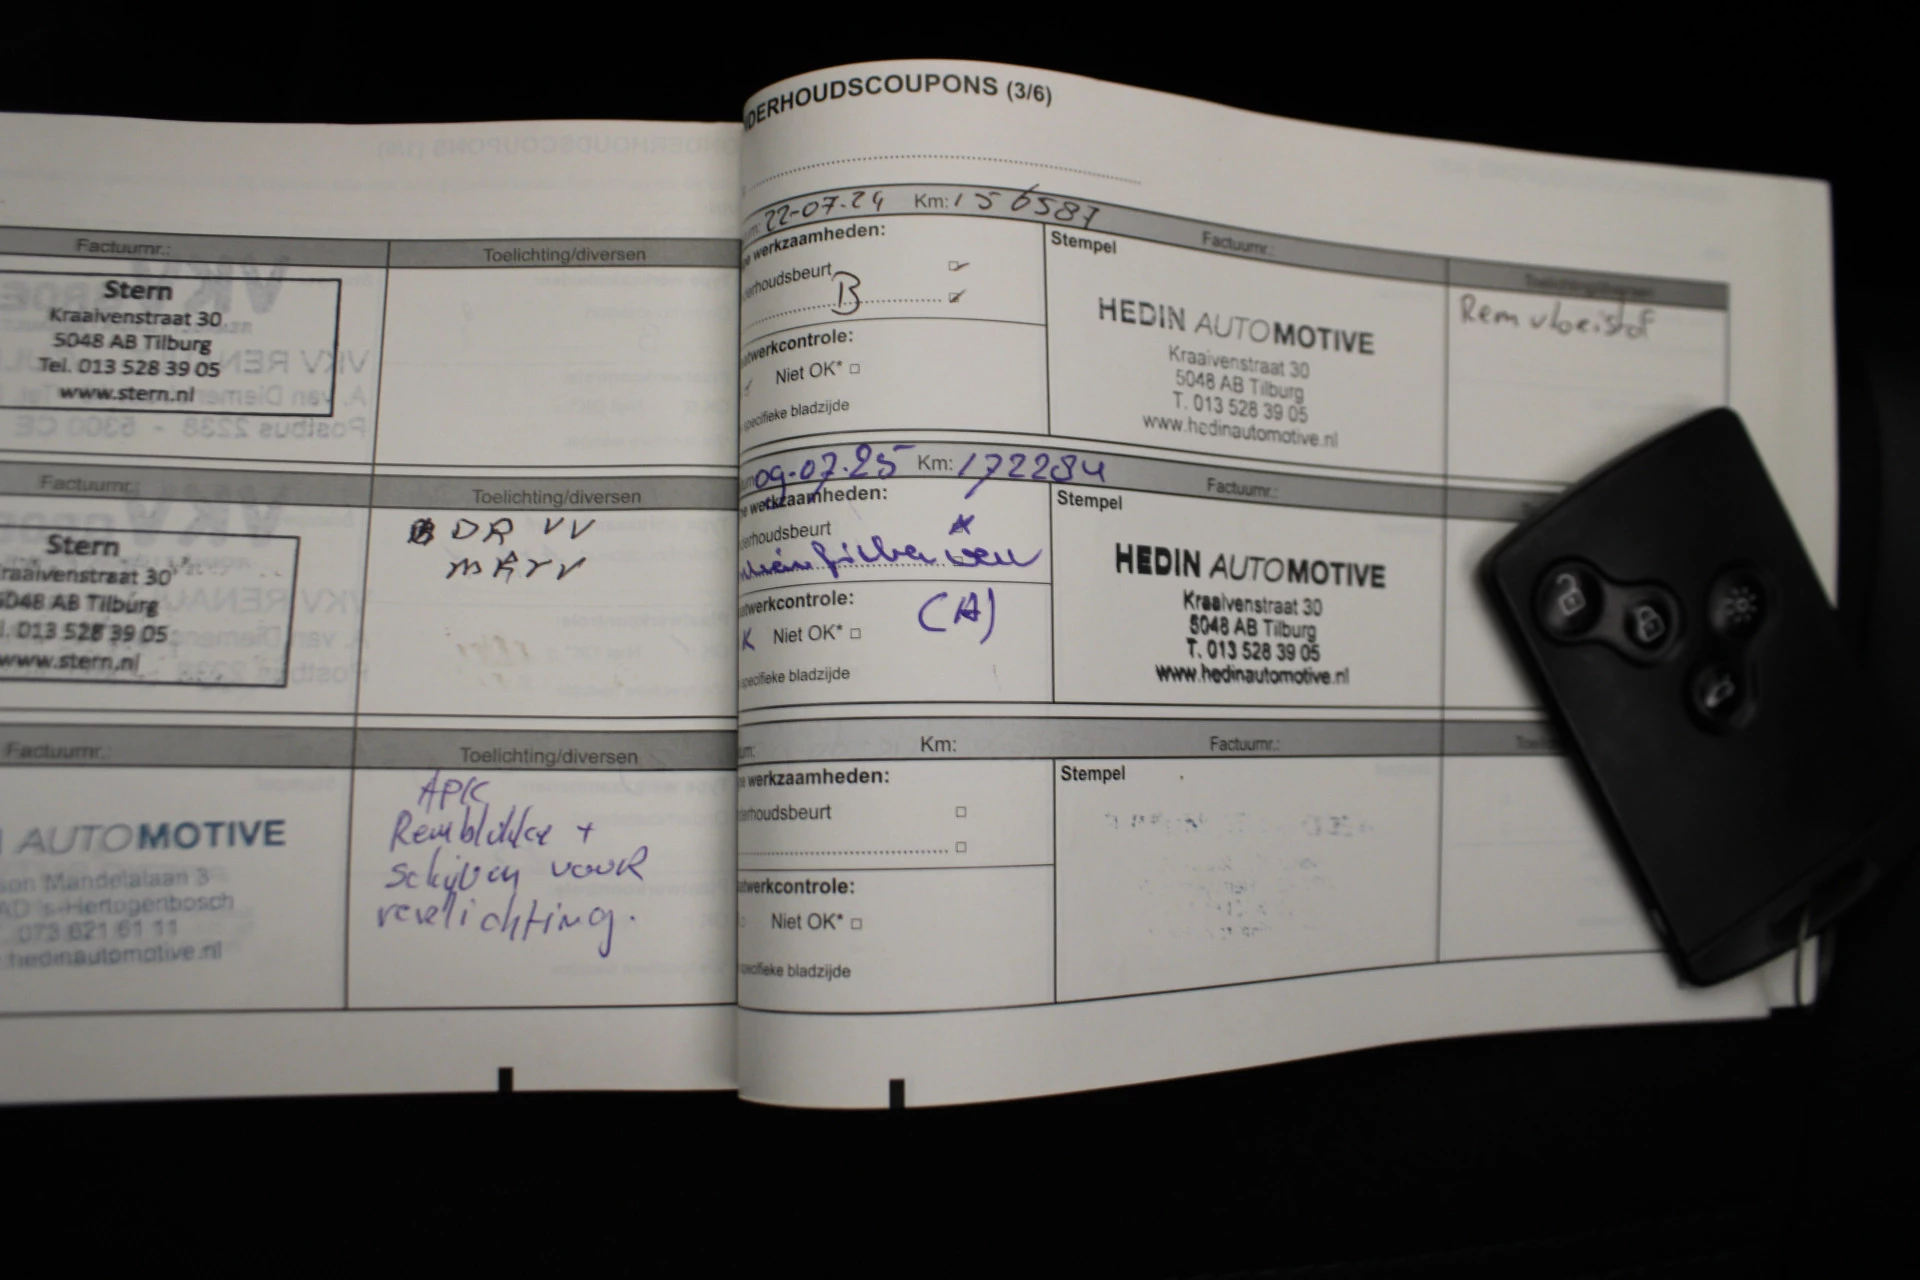 Factuurnr.:
Toelichting/diversen
Stern
Kraaivenstraat 30
5048 AB Tilburg
Tel. 013 528 39 05
www.stern.nl
Factuurnr.:
Toelichting/diversen
Stern
raaivenstraat 30
5048 AB Tilburg
l. 013 528 39 05
www.stern.nl
DR VV
Factuurnr.:
Toelichting/diversen
AUTOMOTIVE
son Mandelalaan 3
AD 's-Hertogenbosch
073 621 61 11
hedinautomotive.nl
APK
Remblokke +
schijven voor
verlichting.
NDERHOUDSCOUPONS (3/6)
um: 22-07-24 Km: 156587
Factuurnr.:
Toelichting/diversen
e werkzaamheden:
derhoudsbeurt
B
atwerkcontrole:
Niet OK*
specifieke bladzijde
Stempel
HEDIN AUTOMOTIVE
Kraaivenstraat 30
5048 AB Tilburg
T. 013 528 39 05
www.hedinautomotive.nl
Rem vloeistof
um: 09-07-25 Km: 172284
Factuurnr.:
e werkzaamheden:
derhoudsbeurt
atwerkcontrole:
(A)
K Niet OK*
specifieke bladzijde
Stempel
HEDIN AUTOMOTIVE
Kraaivenstraat 30
5048 AB Tilburg
T. 013 528 39 05
www.hedinautomotive.nl
um: Km:
Factuurnr.:
e werkzaamheden:
derhoudsbeurt
atwerkcontrole:
Niet OK*
specifieke bladzijde
Stempel